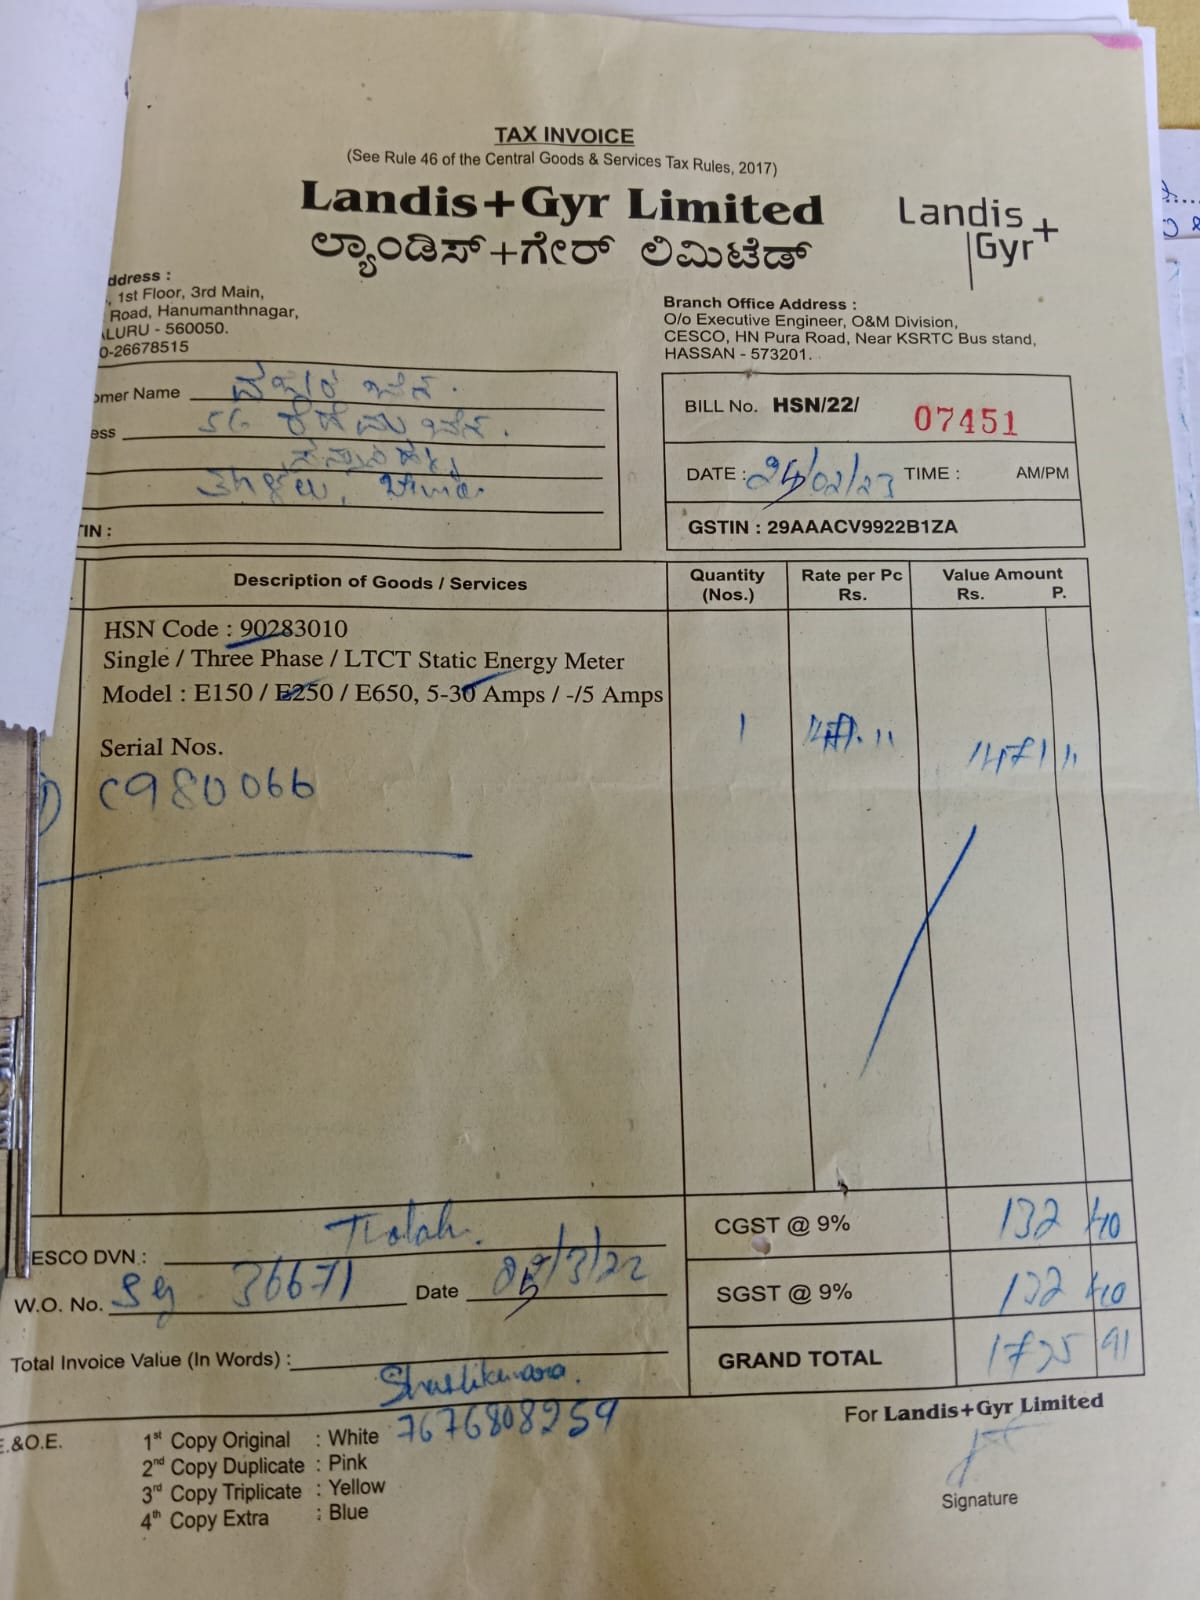 TAX INVOICE
(See Rule 46 of the Central Goods & Services Tax Rules, 2017)
Landis+Gyr Limited
ಲ್ಯಾಂಡಿಸ್+ಗೇರ್ ಲಿಮಿಟೆಡ್
Landis+
Gyr
ddress :
, 1st Floor, 3rd Main,
Road, Hanumanthnagar,
LURU - 560050.
0-26678515
Branch Office Address :
O/o Executive Engineer, O&M Division,
CESCO, HN Pura Road, Near KSRTC Bus stand,
HASSAN - 573201.
omer Name
ess
TIN :
BILL No. HSN/22/ 07451
DATE : 24/02/23 TIME : AM/PM
GSTIN : 29AAACV9922B1ZA
Description of Goods / Services
Quantity (Nos.)
Rate per Pc Rs.
Value Amount Rs. P.
HSN Code : 90283010
Single / Three Phase / LTCT Static Energy Meter
Model : E150 / E250 / E650, 5-30 Amps / -/5 Amps
1
1471 11
Serial Nos.
C980066
CGST @ 9% 132 40
ESCO DVN :
W.O. No. 36671 Date
SGST @ 9% 132 40
Total Invoice Value (In Words) :
GRAND TOTAL 1735 91
Shashikumara.
7676808259
For Landis+Gyr Limited
E.&O.E.
1st Copy Original : White
2nd Copy Duplicate : Pink
3rd Copy Triplicate : Yellow
4th Copy Extra : Blue
Signature